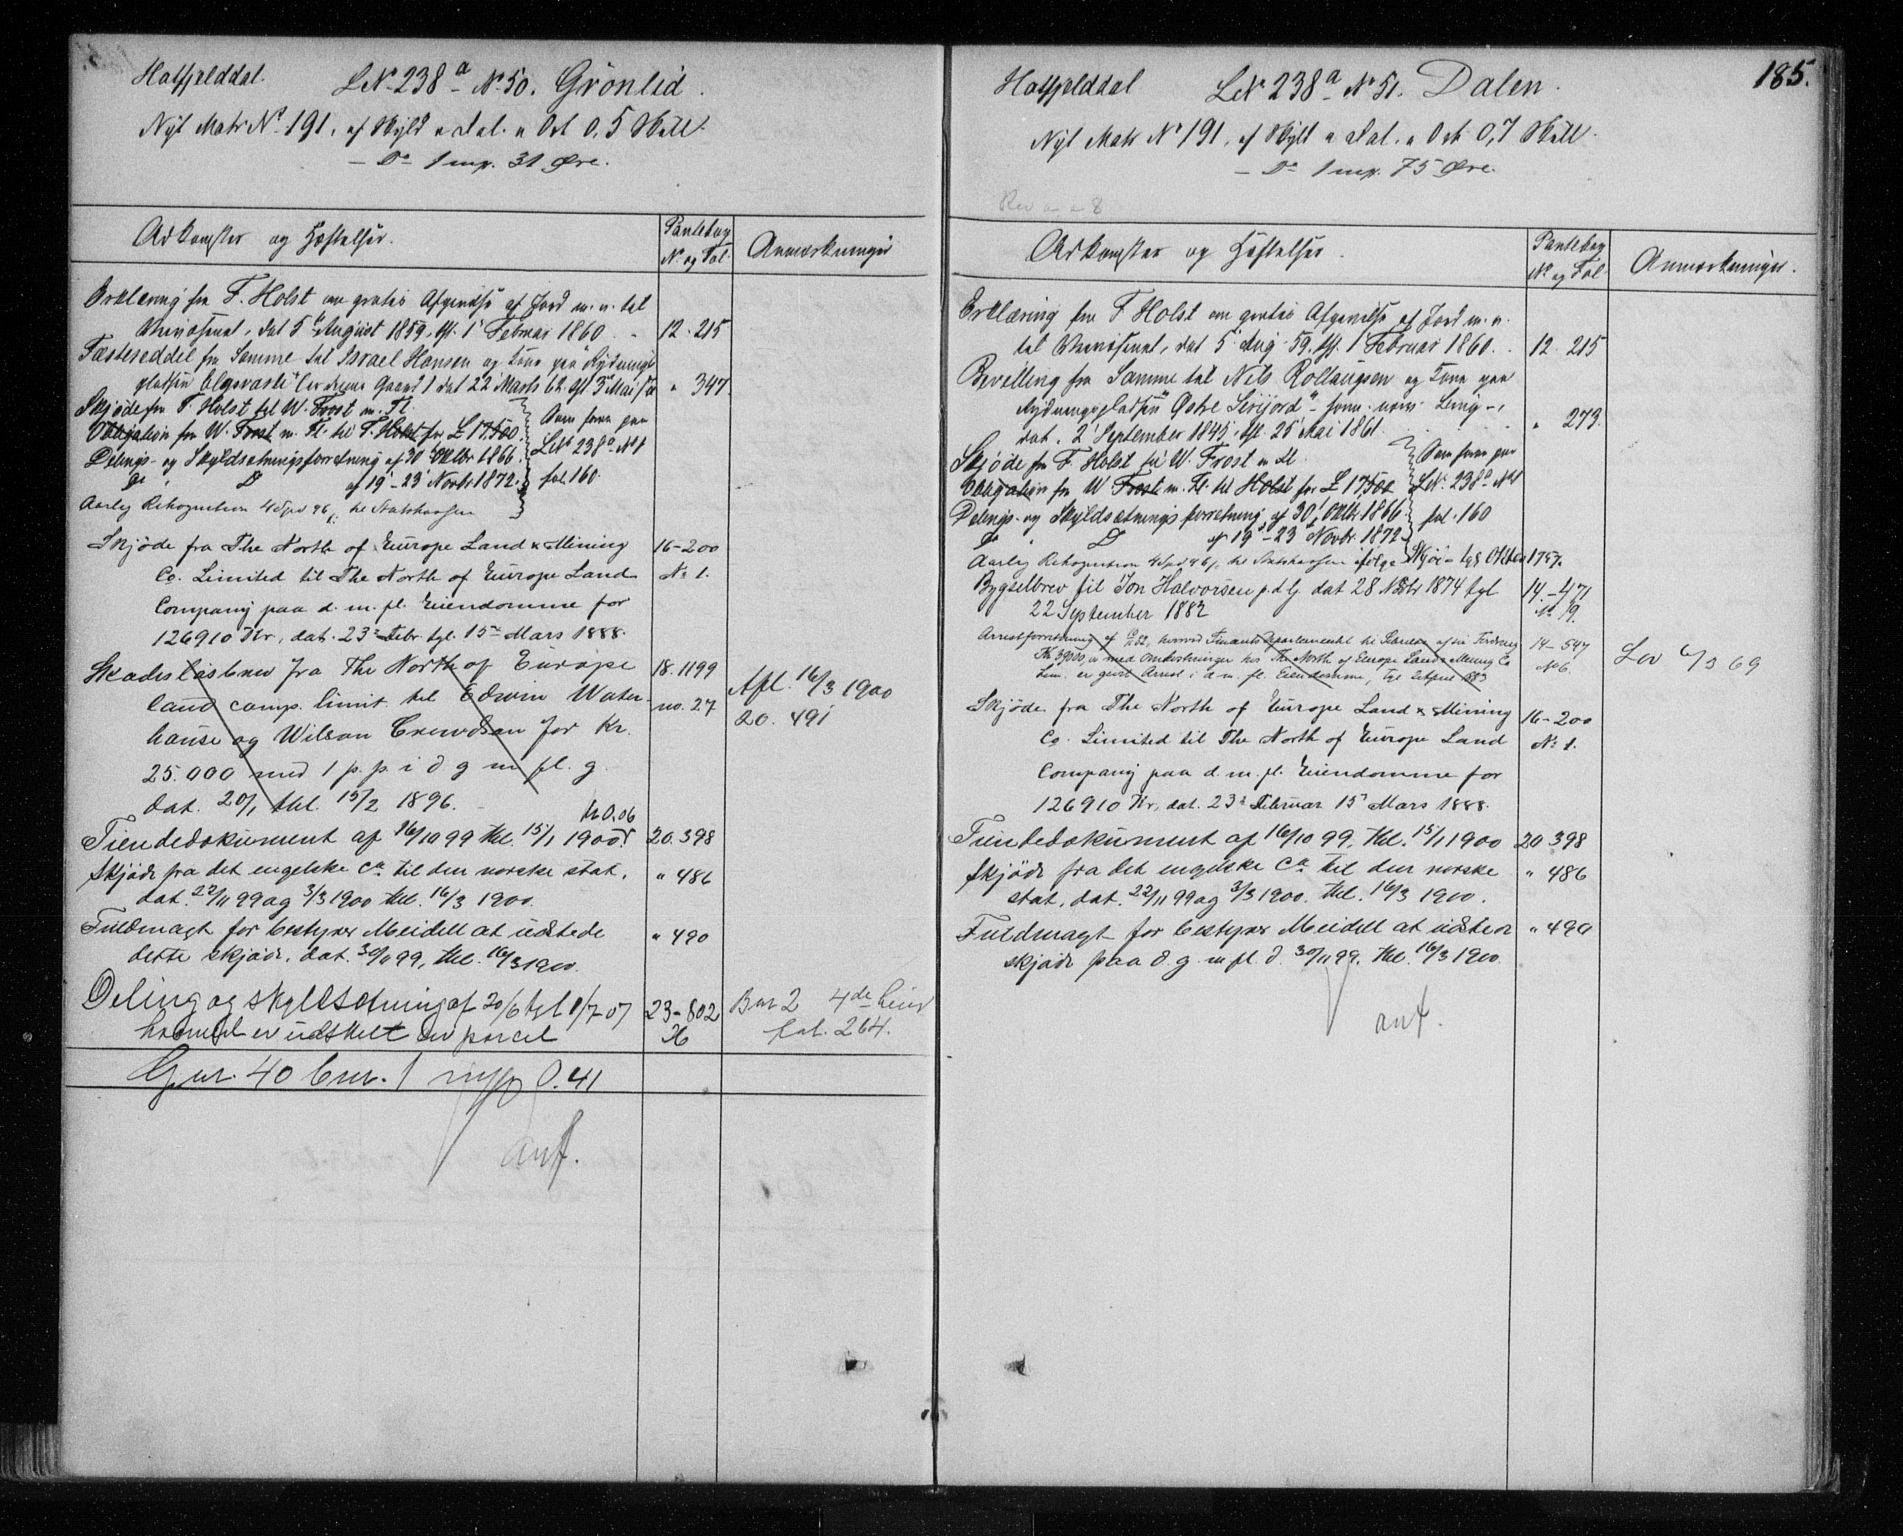 Hatfjelddal. LN. 238a No 50. Grönlid.
Nyt Matr No 191, af Skyld " Dal. " Ort 0,5 Skill.
— Do 1 mrk. 31 Øre.
Adkomster og Hæftelser.
Pantebog
No og Fol.
Anmærkninger
Erklæring fra F. Holst om gratis Afgivelse af Jord m. v. til
Oberst, dat 5 August 1859, tgl. 1 Februar 1860 12. 215
Fæsteseddel fra Samme til Israel Hansen og Kone paa Rydnings
pladsen dat 22 Marts 62. tgl 3 Mai " 347.
Skjøde fra F. Holst til W. Frost m. Fl.
Obligation fra W. Frost m. Fl. til F. Holst for £ 17,500.
Delings- og Skyldsætningsforretning af 30 Oktbr 1866.
Do. D af 19-23 Novbr 1872.
Som foran paa
LN 238a No 1
fol. 160.
Aarlig Rekognition 4 Spd 96 til Statskassen
Skjøde fra The North of Europe Land & Mining 16-200
Co. Limited til The North of Europe Land No 1.
Company paa d. m. fl. Eiendomme for
126910 Kr, dat. 23 Febr. tgl. 15 Mars 1888.
Skadesløsbrev fra The North of Europe 18. 1199
land comp. limit. til Edwin Water- no. 27
house og Wilson Crewdson for Kr.
25.000 med 1 p. p. i d g m fl. g.
dat. 20/1 thl. 15/2 1896.
Afl. 16/3 1900
20. 491
Kr 0.06
Tiendedokument af 16/10 99 thl. 15/1 1900. 20. 398
Skjøde fra det engelske Co. til den norske stat. " 486
dat. 22/11 99 og 3/3 1900 thl. 16/3 1900.
Fuldmagt for bestyrer Meidell at udstede " 490
dette skjøde, dat. 30/11 99, thl. 16/3 1900.
Deling og skyldsetning af 20/6 tgl 1/7 07 23-802
hvorved er udskilt en parcel 36
Bnr 2 4de
fol. 264.
Gnr. 40 bnr. 1 0.41
anf.
185.
Hatfjelddal LN 238a No 51. Dalen.
Nyt Matr No 191, af Skyld " Dal. " Ort 0,7 Skill.
— Do 1 mrk. 75 Øre.
Adkomster og Hæftelser.
Pantebog
No og Fol
Anmærkninger.
Erklæring fra F Holst om gratis Afgivelse af Jord m. v.
til dat 5 Aug 59, tgl. 1 Februar 1860. 12. 215
Bevilling fra Samme til Nils Rollaugsen og Kone paa
Rydningspladsen "Østre "
dat. 2 September 1845. tgl. 25 Mai 1861. " 273.
Skjøde fra F. Holst til W. Frost m Fl.
Obligation fra W Frost m. Fl. til Holst for £ 17,500
Delings- og Skyldsætningsforretning af 30 Oktbr 1866
Do. D af 19-23 Novbr. 1872
Som foran paa
LN. 238a No 1
fol. 160
Aarlig Rekognition 4 Spd 96 til Statskassen ifølge Skjøde tgl Oktbr 1757.
Bygselbrev til Jon Halvorsen p. d. Ej. dat 28 1874 tgl 14-471
22 September 1882 No 9.
Arrestforretning af hvorved Finants Departementet til 14-547
Kr. 39000, med Omkostninger hos The North of Europe Land & Mining Co No 6.
Lim. er gjort Arrest i d. m. fl. Eiendomme, tgl. 2 April 1883
Lov 69
Skjøde fra The North of Europe Land & Mining 16-200
Co. Limited til The North of Europe Land No 1.
Company paa d. m. fl. Eiendomme for
126910 Kr, dat. 23 Februar 15 Mars 1888.
Tiendedokument af 16/10 99. thl. 15/1 1900 20 398
Skjøde fra det engelske Co. til den norske " 486
stat, dat. 22/11 99 og 3/3 1900. thl. 16/3 1900.
Fuldmagt for bestyrer Meidell at udstede " 490
skjøde paa d. g. m fl. d. 30/11 99. thl. 16/3 1900.
anf.